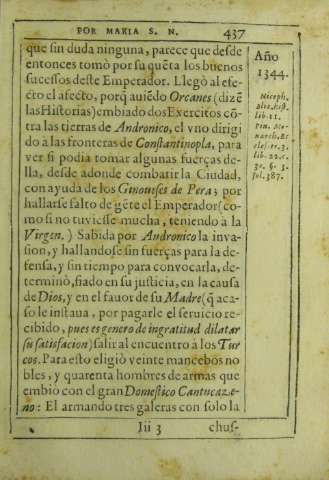 POR MARIA S. N. 437
que sin duda ninguna, parece que desde
entonces tomò por su quẽta los buenos
sucessos deste Emperador. Llegò al efe-
cto el afecto, porq̃ auiẽdo Orcanes (dizẽ
las Historias) embiado dos Exercitos cõ-
tra las tierras de Andronico, el vno dirigi
do à las fronteras de Constantinopla, para
ver si podia tomar algunas fuerças de-
lla, desde adonde combatir la Ciudad,
con ayuda de los Ginoueses de Pera; por
hallarse falto de gẽte el Emperador (co-
mo si no tuviesse mucha, teniendo à la
Virgen.) Sabida por Andronico la inva-
sion, y hallandose sin fuerças para la de-
fensa, y sin tiempo para convocarla, de-
terminò, fiado en su justicia, en la causa
de Dios, y en el fauor de su Madre (q̃ aca-
so le instaua, por pagarle el servicio re-
cibido, pues es genero de ingratitud dilatar
su satisfacion) salir al encuentro à los Tur
cos. Para esto eligiò veinte mancebos no
bles, y quarenta hombres de armas que
embiò con el gran Domestico Cantucaze-
no: El armando tres galeras con solo la
Iii 3 chus-
Año
1344.
Niceph.
lib. 11.
lib. 22. c.
30. §. 3.
fol. 387.